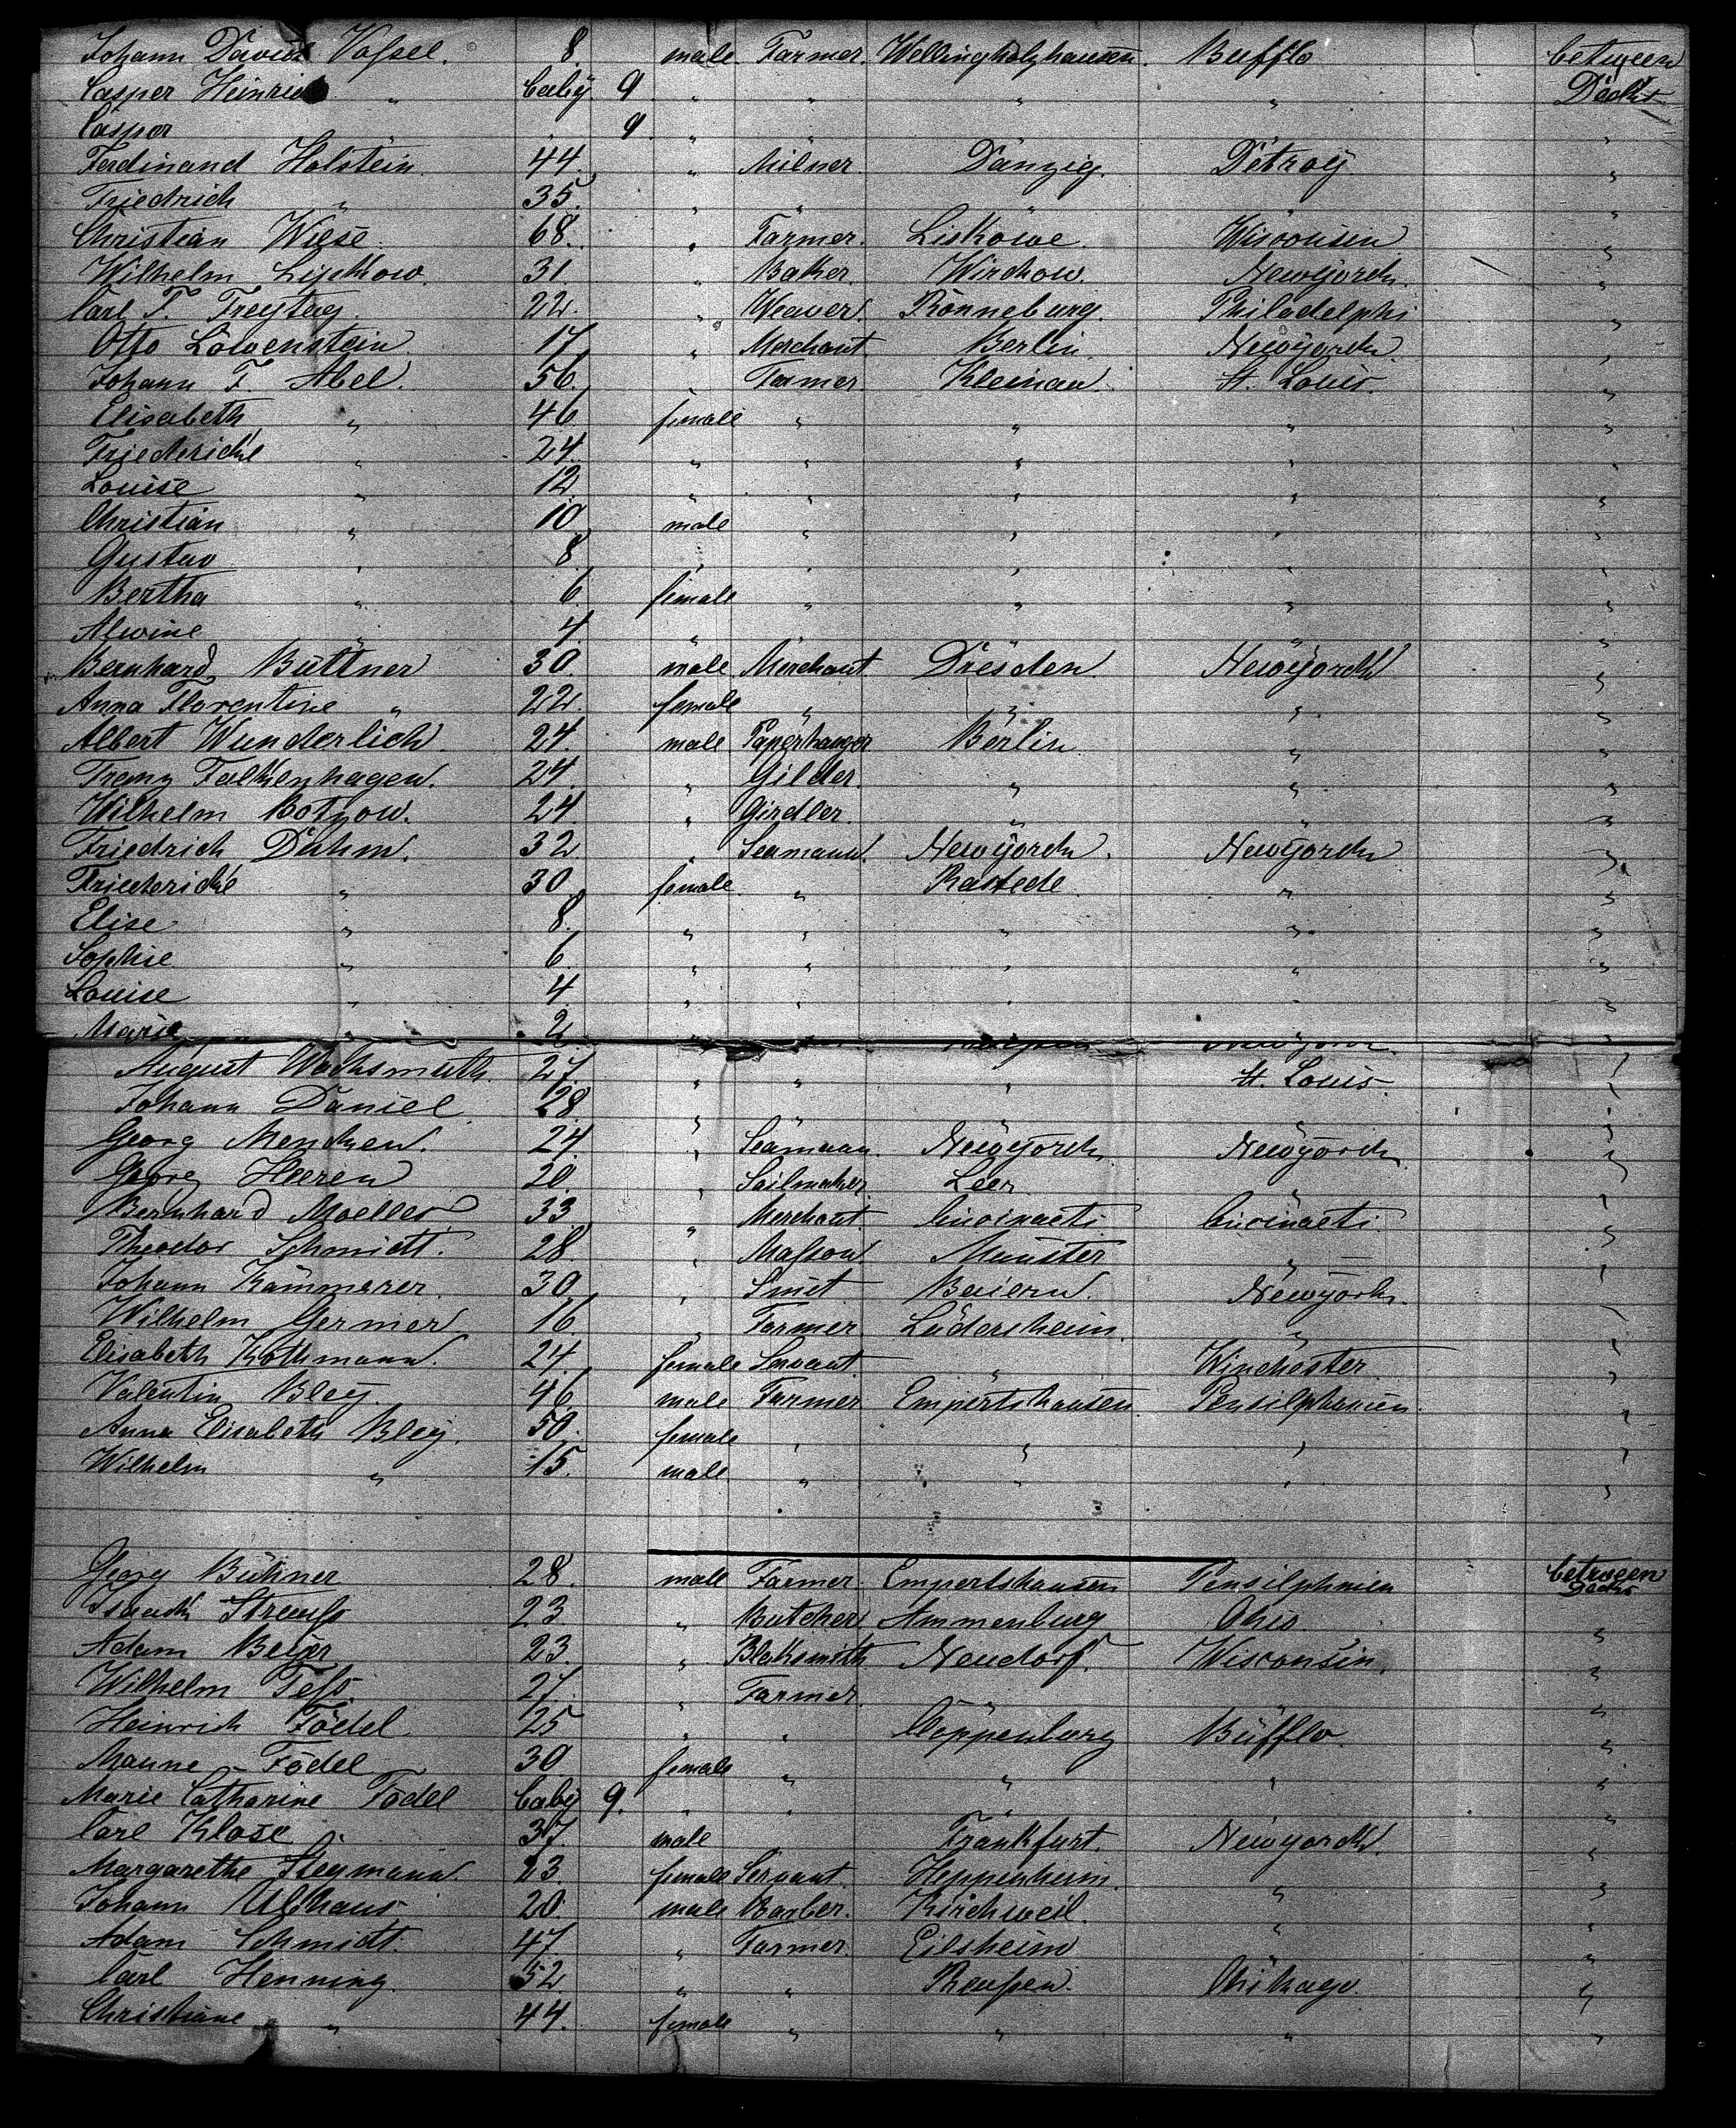 Johann David Vossel. 8. male Farmer. Wellingholzhausen. Bufflo between
Casper Heinrich " baby. 9. " " " " Decks
Casper 9. " "
Ferdinand Holstein. 44. " Milner. Danzig. Detroy "
Friedrich " 35. " " "
Christian Wiese. 68. " Farmer. Liskowe. Wisconsin "
Wilhelm Lipkow. 31 " Baker. Wirchow. Newyorck. "
Carl F. Freytag. 22. " Weaver. Ronneburg. Philadelphi "
Otto Löwenstein 17. " Merchant. Berlin. Newyorck. "
Johann F. Abel. 56. " Farmer. Kleinau. St. Louis. "
Elisabeth " 46. female " " " "
Friedericke " 24. " " " " "
Louise " 12. " " " " "
Christian " 10. male " " " "
Gustav " 8. " " " " "
Bertha " 6. female " " " "
Alwine " 4. " " "
Bernhard Büttner 30. male Merchant. Dresden. Newyorck "
Anna Florentine " 22. female " " " "
Albert Wunderlich. 24. male Paperhanger Berlin. " "
Falkenhagen. 24. " Gilder. " " "
Wilhelm Botzow. 24. " Girdler. " " "
Friedrich Dahm. 32. " Seamann. Newyorck. Newyorck "
Friedericke " 30. female " Rastede " "
Elise " 8. " " " " "
Sophie " 6. " " " " "
Louise " 4. " " " " "
Marie " 2. "
August Wachsmuth. 27. " " " St. Louis. "
Johann Daniel 28. " "
Georg Mencken. 24. " Seamann. Newyorck. Newyorck. "
Georg Heeren 20. " Sailmaker. Leer. " "
Bernhard Moeller 33. " Merchant. Cincinaeti Cincinaeti "
Theodor Schmidt. 28. " Masson. Munster " "
Johann Kämmerer. 30. " Smit Baiern. Newyorck. "
Wilhelm Germer 16. " Farmer Lüdersheim. " "
Elisabeth Kothmann. 24. female Servant. " Winchester "
Valentin Bley. 46. male Farmer Empertshausen. Pensilphanien. "
Anna Elisabeth Bley. 50. female " " " "
Wilhelm " 15. male " " " "
Georg Bühner 28. male Farmer. Empertshausen Pensilphnien between Decks
Isaack Strauss 23 " Butcher Ammenburg Ohio. "
Adam Beyer 23. " Blaksmith Neudorf. Wisconsin. "
Wilhelm Tess. 27. " Farmer. "
Heinrich Födel 25 " " Cloppenburg Büfflo. "
Födel 30. female " " " "
Marie Catharine Födel baby 9. " " "
Carl Klose. 37. male " Frankfurt. Newyorck. "
Margarethe Stegmann. 23. female Servant. Heppenheim. " "
Johann Ulthaus 20. male Barber. Kirchweil. " "
Adam Schmidt. 47. " Farmer. Eilsheim "
Carl Henning. 52 " " Reussen. Chikago. "
Christiane " 44. female " " " "